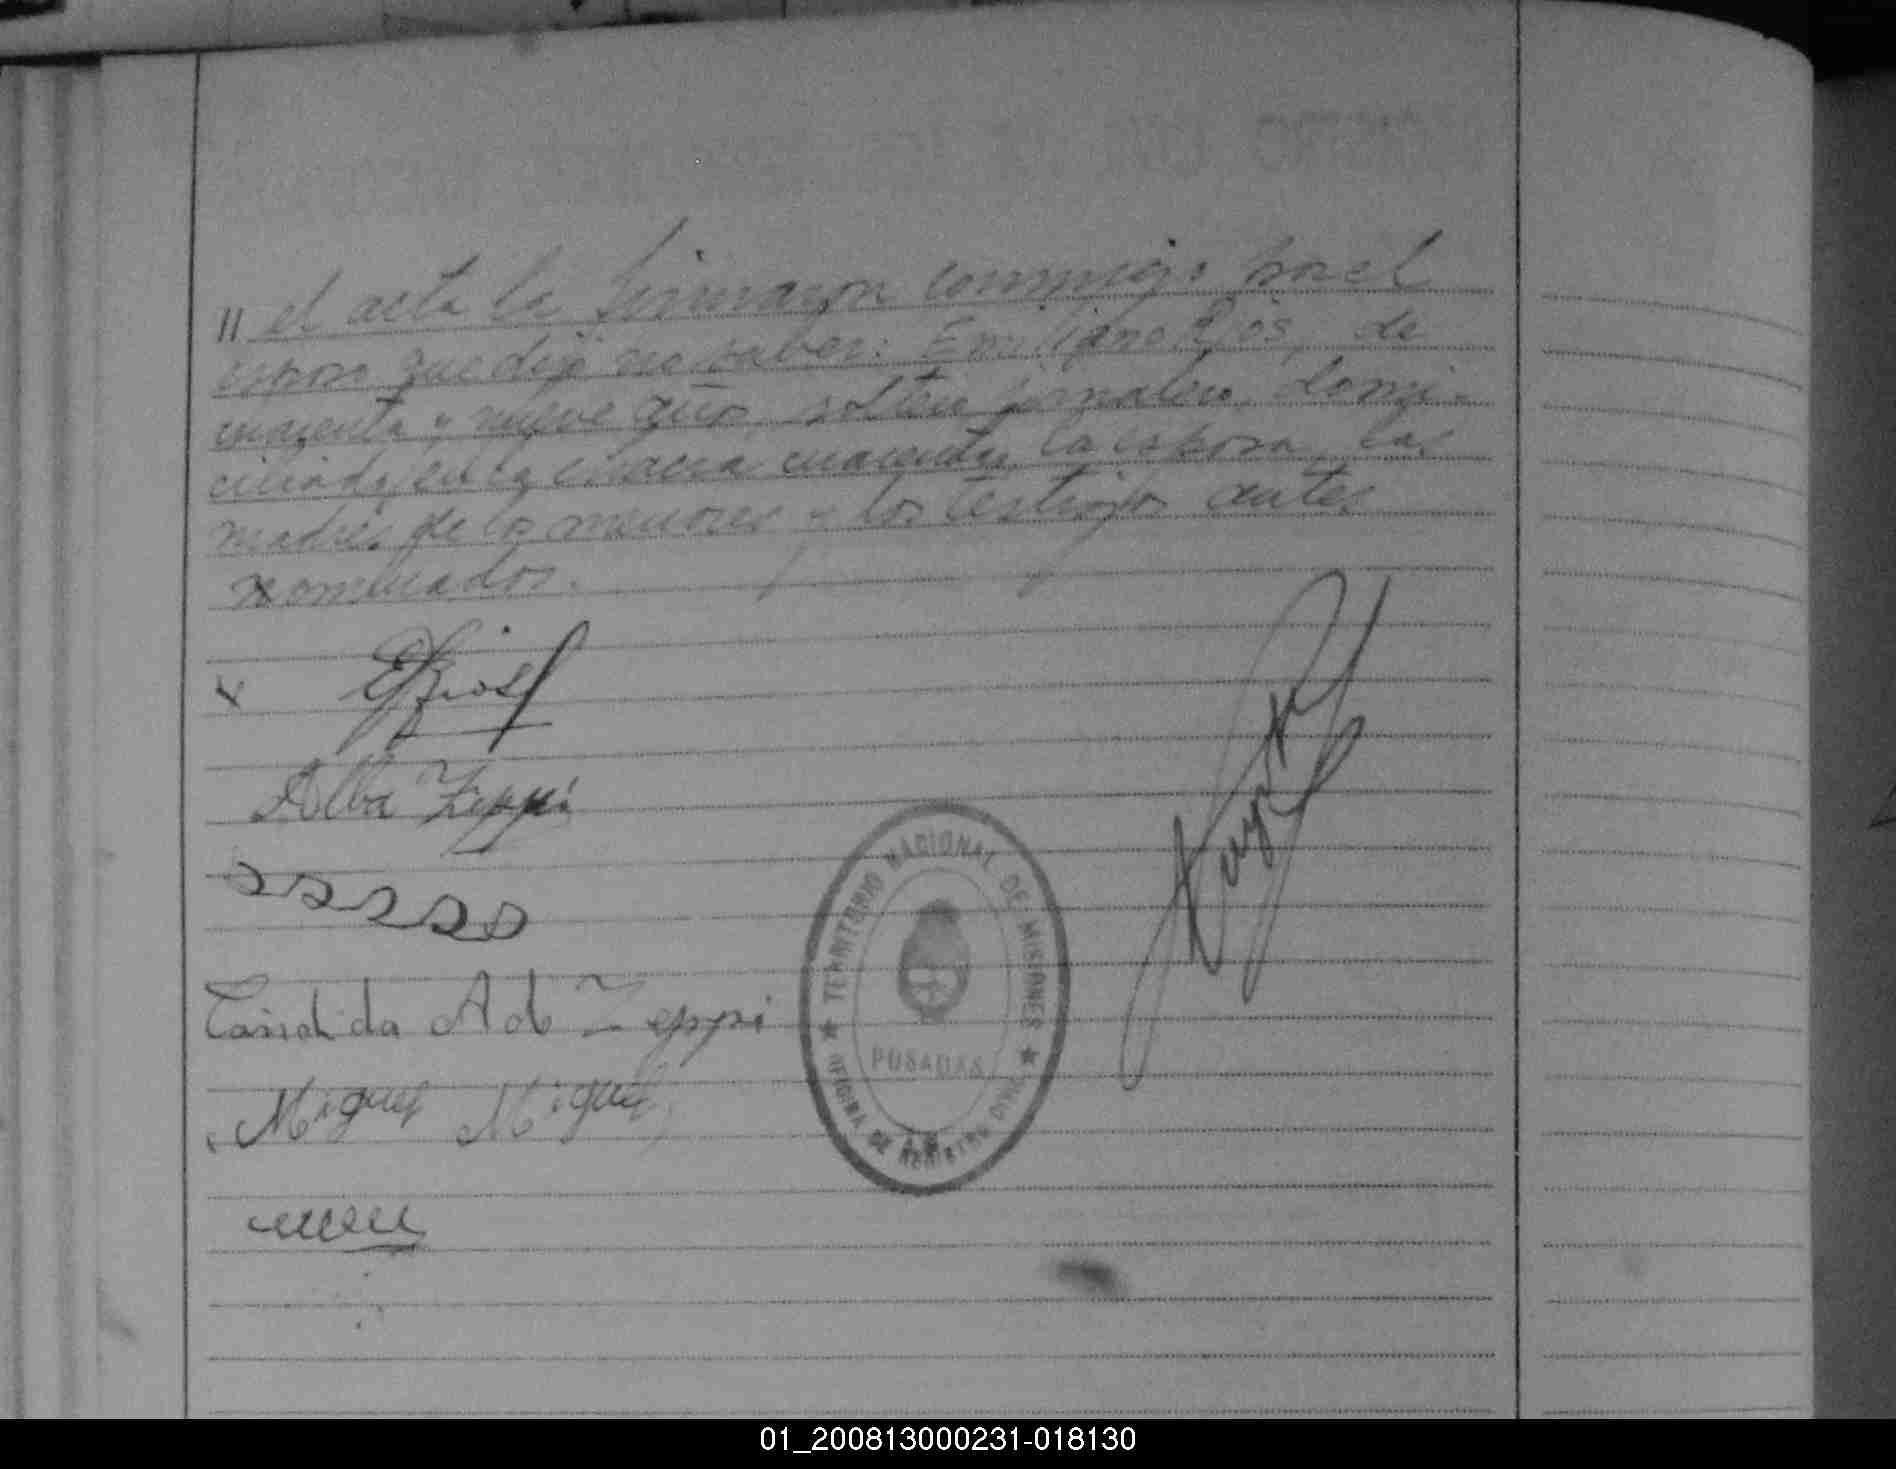 // el acta la firmaron conmigo por el
esposo que dijo no saber: Emiliano Ríos, de
cuarenta y nueve años, soltero jornalero, domi-
ciliado en la chacra cuarenta, la esposa, las
madres de los menores y los testigos antes
nombrados.
x E Rios
Alba Zeppi
Candida A de Zeppi
Miguel Miguel
TERRITORIO NACIONAL DE MISIONES
POSADAS
OFICINA DE REGISTRO CIVIL
01_200813000231-018130